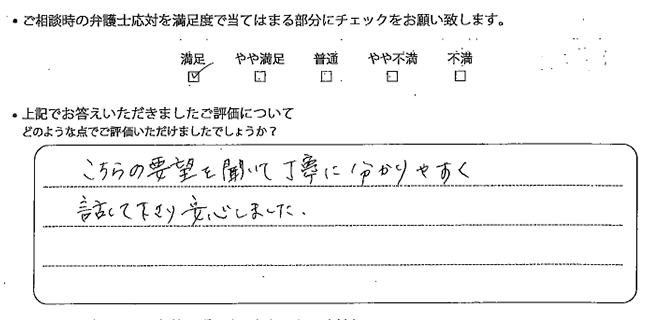 ・ご相談時の弁護士応対を満足度で当てはまる部分にチェックをお願い致します。
満足 やや満足 普通 やや不満 不満
☑ □ □ □ □
・上記でお答えいただきましたご評価について
どのような点でご評価いただけましたでしょうか？
こちらの要望を聞いて丁寧に分かりやすく
話して下さり安心しました.